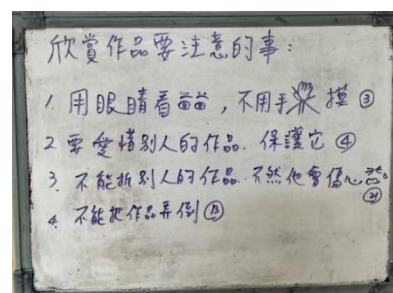 欣賞作品要注意的事:
1. 用眼睛看, 不用手摸 ③
2. 要愛惜別人的作品. 保護它 ④
3. 不能拆別人的作品. 不然他會傷心
㉑
4. 不能把作品弄倒 ⑬